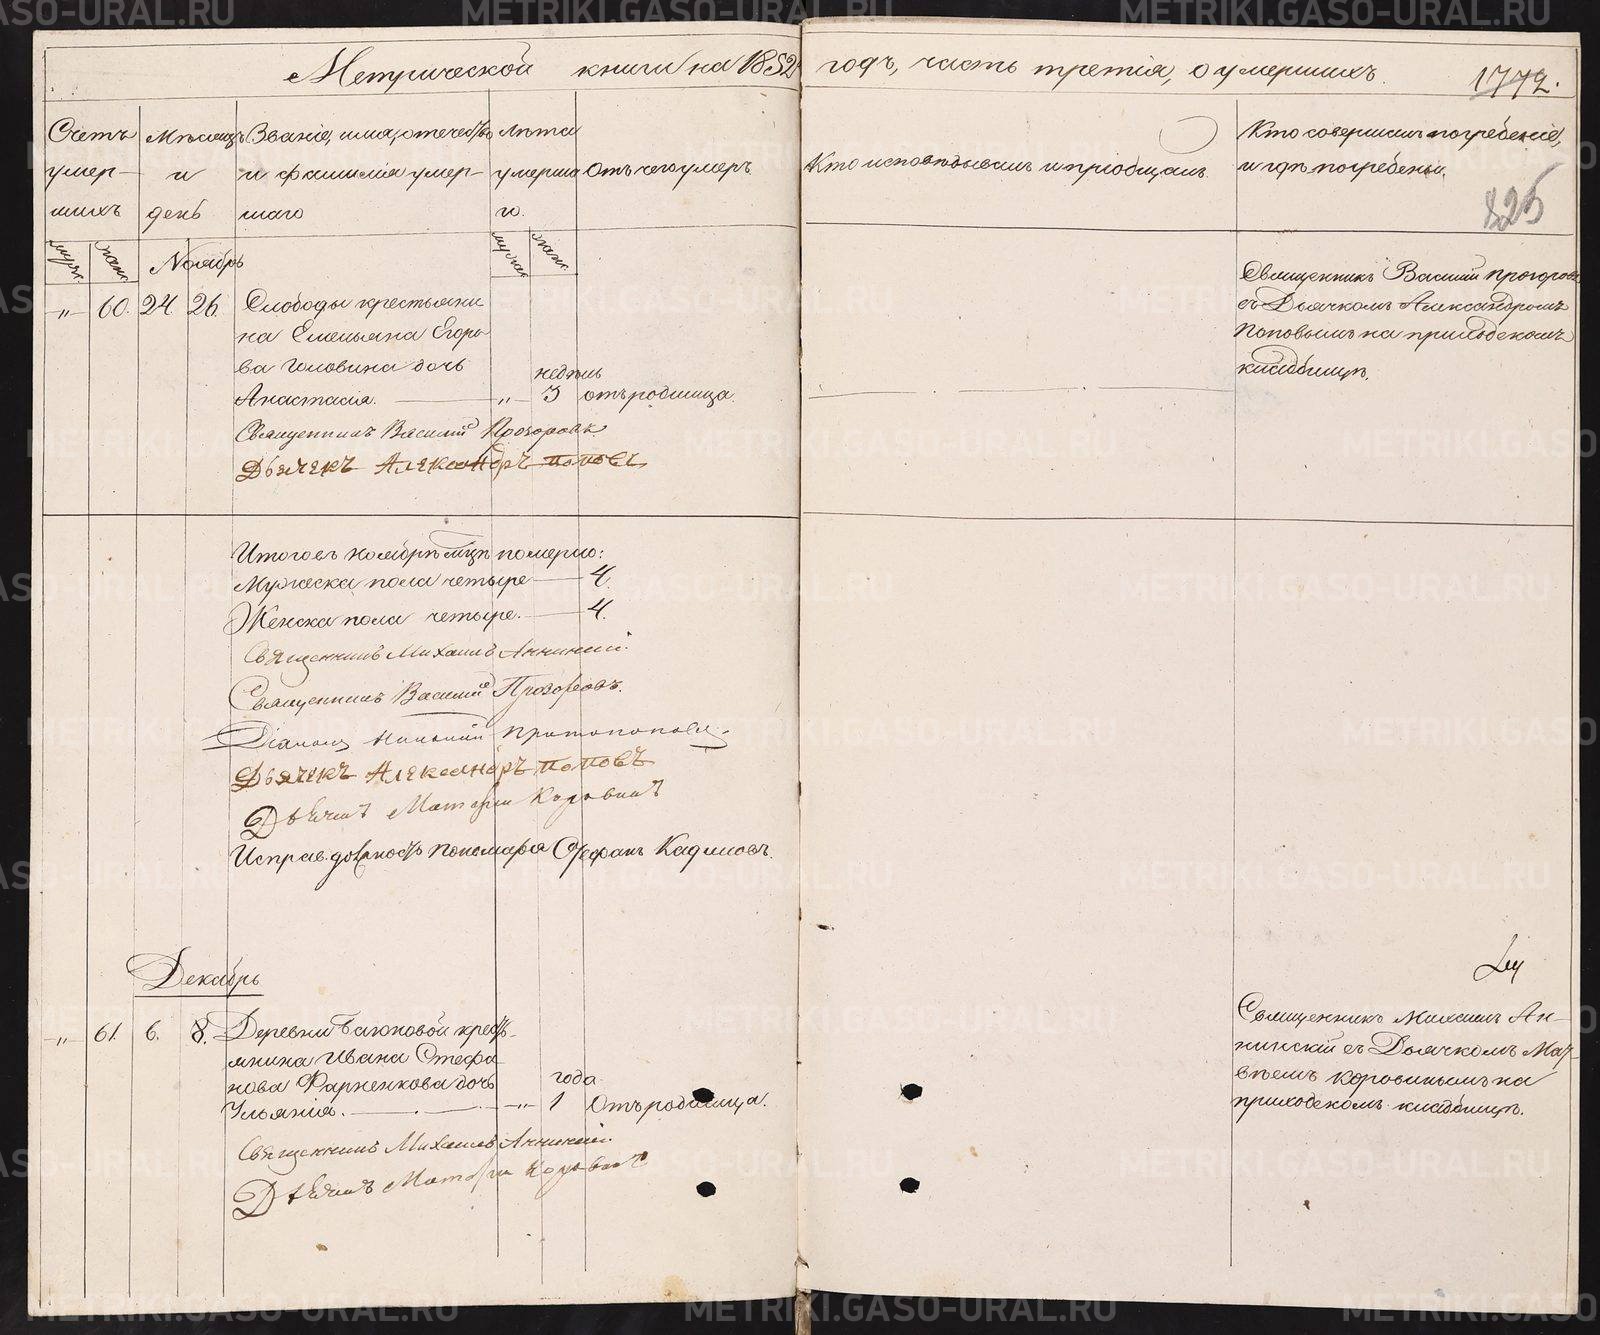 Метрической книги на 1852 годъ, часть третія, о умершихъ.
1772.
825
Счетъ умер-шихъ
Мѣсяцъ и день
Званіе, имя, отечество и фамилія умер-шаго
Лѣта умерша го.
Отъ чего умеръ
Кто исповѣдывалъ и пріобщалъ.
Кто совершалъ погребеніе,
и гдѣ погребены.
муж. жен.
Ноябрь
муж. жен.
„ 60. 24 26. Слободы крестьяни
на Емельяна Егоро
ва Головина дочь
недѣль
Анастасія. „ 3 отъ родимца.
Священникъ Василій Прозоровъ
съ Дьячкомъ Александромъ
Поповымъ на приходскомъ
кладбищѣ.
Священникъ Василій Прозоровъ.
Дьячекъ Александръ Поповъ
Итого въ ноябрѣ м͠цѣ померло:
Мужеска пола четыре 4.
Женска пола четыре. 4.
Священникъ Михаилъ Аннинскій.
Священникъ Василій Прозоровъ.
Діаконъ Протопоповъ.
Дьячекъ Александръ Поповъ
Дьячекъ Матѳей Коровинъ
Исправ. должность пономаря Стефанъ Кадиловъ.
Декабрь
„ 61. 6. 8. Деревни Баюновой крестья-
янина Ивана Стефа
нова Фарненкова дочь
года
Ульянія. „ 1 Отъ родимца.
Священникъ Михаилъ Ан-
нинскій съ Дьячкомъ Мат-
вѣемъ Коровинымъ на
приходскомъ кладбищѣ.
Священникъ Михаилъ Аннинскій.
Дьячекъ Матѳей Коровинъ
METRIKI.GASO-URAL.RU